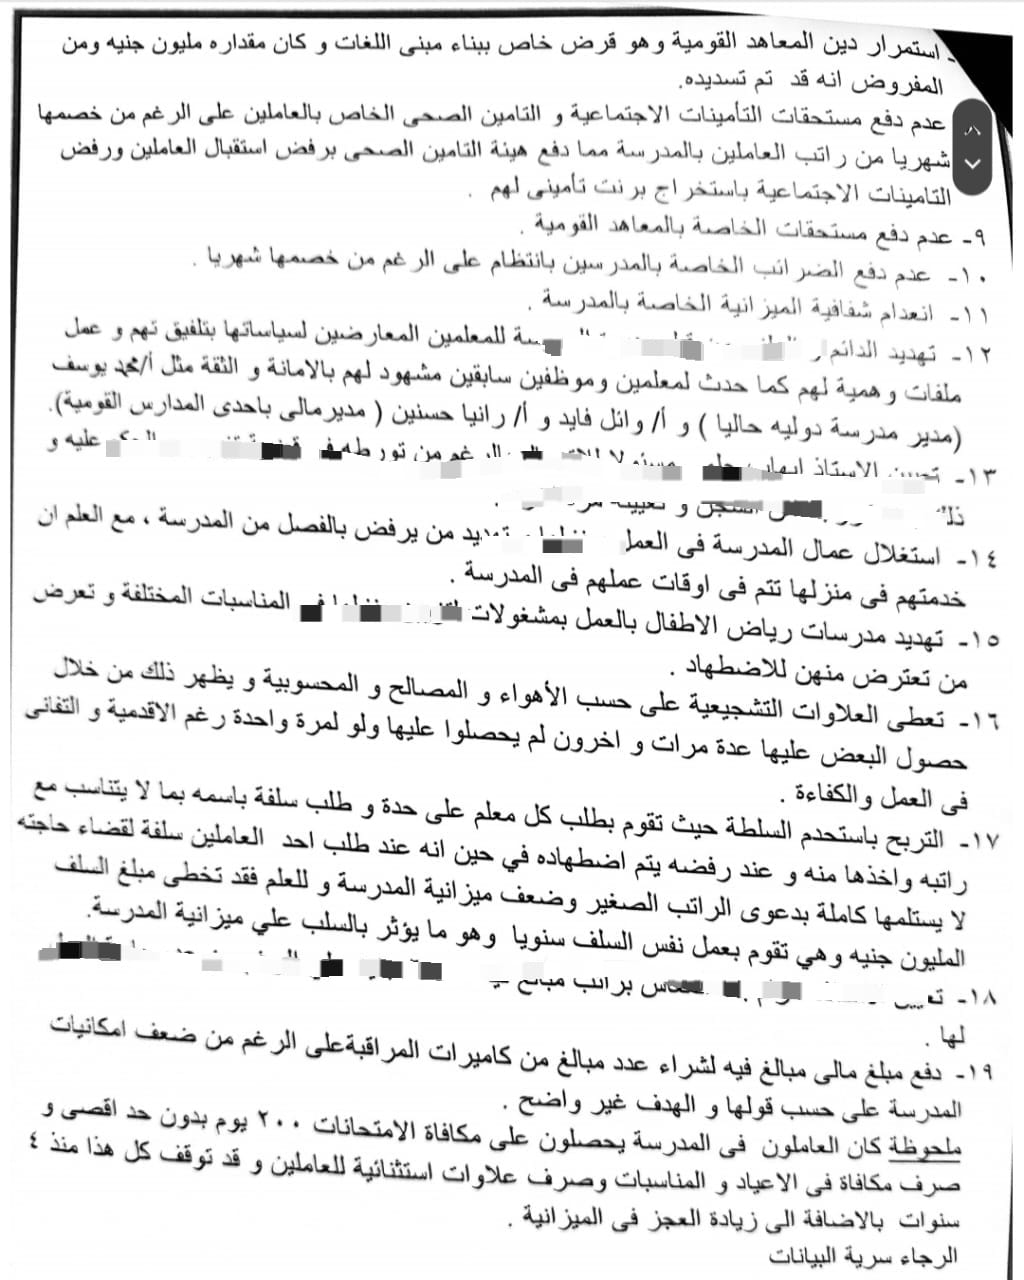 - استمرار دين المعاهد القومية وهو قرض خاص ببناء مبنى اللغات و كان مقداره مليون جنيه ومن
المفروض انه قد تم تسديده.
عدم دفع مستحقات التأمينات الاجتماعية و التامين الصحى الخاص بالعاملين على الرغم من خصمها
شهريا من راتب العاملين بالمدرسة مما دفع هيئة التامين الصحى برفض استقبال العاملين ورفض
التامينات الاجتماعية باستخراج برنت تأمينى لهم .
٩- عدم دفع مستحقات الخاصة بالمعاهد القومية .
١٠- عدم دفع الضرائب الخاصة بالمدرسين بانتظام على الرغم من خصمها شهريا .
١١- انعدام شفافية الميزانية الخاصة بالمدرسة .
١٢- تهديد الدائم للمعلمين المعارضين لسياساتها بتلفيق تهم و عمل
ملفات وهمية لهم كما حدث لمعلمين وموظفين سابقين مشهود لهم بالامانة و الثقة مثل أ/محمد يوسف
(مدير مدرسة دوليه حاليا ) و أ/ وائل فايد و أ/ رانيا حسنين ( مديرمالى باحدى المدارس القومية).
١٣- تعيين الاستاذ ايهاب مسئولا الرغم من تورطه فى عليه و
السجن و تعيينه
١٤- استغلال عمال المدرسة فى العمل و تهديد من يرفض بالفصل من المدرسة ، مع العلم ان
خدمتهم فى منزلها تتم فى اوقات عملهم فى المدرسة .
١٥- تهديد مدرسات رياض الاطفال بالعمل بمشغولات المناسبات المختلفة و تعرض
من تعترض منهن للاضطهاد .
١٦- تعطى العلاوات التشجيعية على حسب الأهواء و المصالح و المحسوبية و يظهر ذلك من خلال
حصول البعض عليها عدة مرات و اخرون لم يحصلوا عليها ولو لمرة واحدة رغم الاقدمية و التفانى
فى العمل والكفاءة .
١٧- التربح باستخدم السلطة حيث تقوم بطلب كل معلم على حدة و طلب سلفة باسمه بما لا يتناسب مع
راتبه واخذها منه و عند رفضه يتم اضطهاده في حين انه عند طلب احد العاملين سلفة لقضاء حاجته
لا يستلمها كاملة بدعوى الراتب الصغير وضعف ميزانية المدرسة و للعلم فقد تخطى مبلغ السلف
المليون جنيه وهي تقوم بعمل نفس السلف سنويا وهو ما يؤثر بالسلب علي ميزانية المدرسة.
١٨- تعيين براتب مبالغ
لها .
١٩- دفع مبلغ مالى مبالغ فيه لشراء عدد مبالغ من كاميرات المراقبةعلى الرغم من ضعف امكانيات
المدرسة على حسب قولها و الهدف غير واضح .
ملحوظة كان العاملون فى المدرسة يحصلون على مكافاة الامتحانات ٢٠٠ يوم بدون حد اقصى و
صرف مكافاة فى الاعياد و المناسبات وصرف علاوات استثنائية للعاملين و قد توقف كل هذا منذ ٤
سنوات بالاضافة الى زيادة العجز فى الميزانية .
الرجاء سرية البيانات